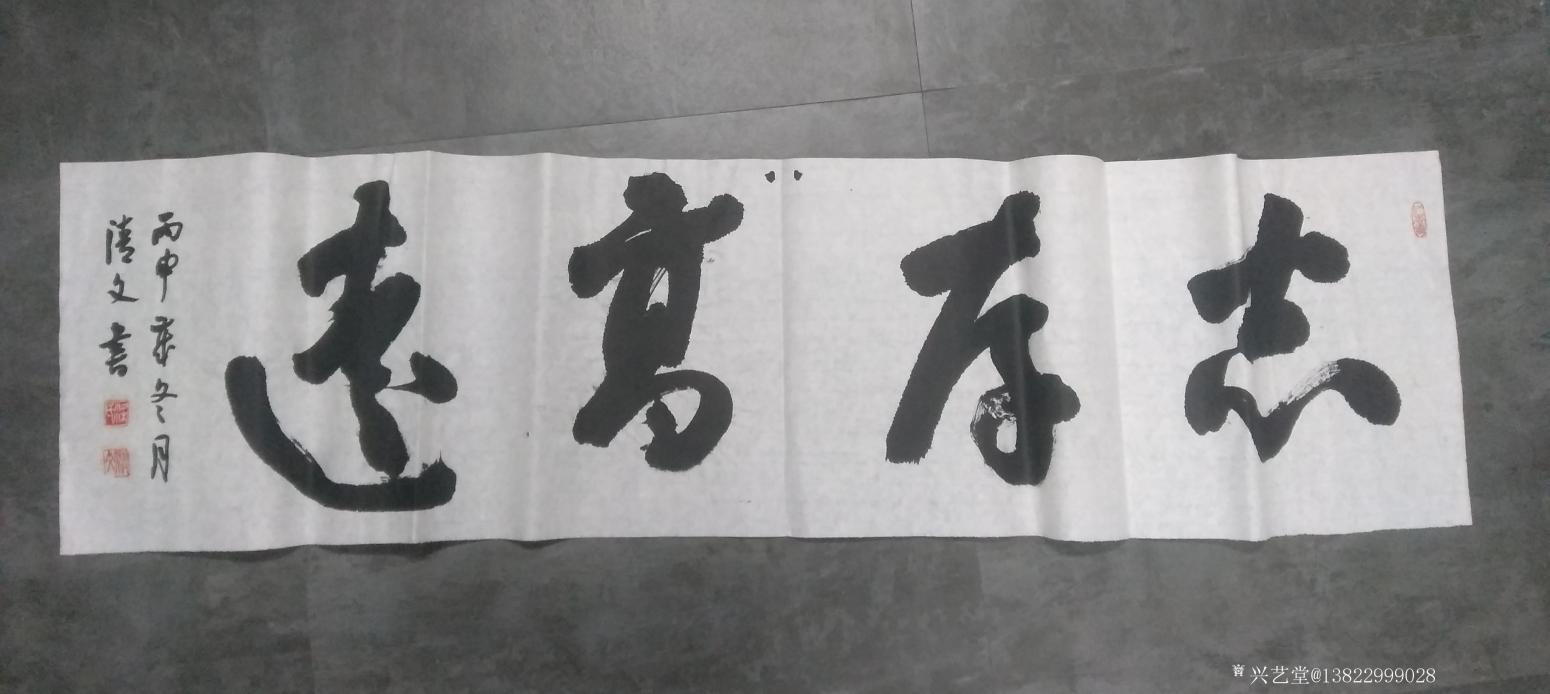 志存高遠
丙申年冬月
清文書
兴艺堂@13822999028